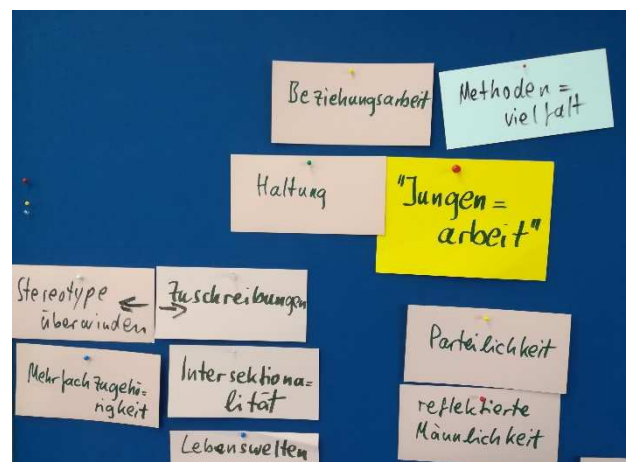 Beziehungsarbeit
Methoden=
vielfalt
Haltung
"Jungen=
arbeit"
Stereotype
überwinden
Zuschreibungen
Mehrfachzugehö=
rigkeit
Intersektiona=
lität
Lebenswelten
Parteilichkeit
reflektierte
Männlichkeit